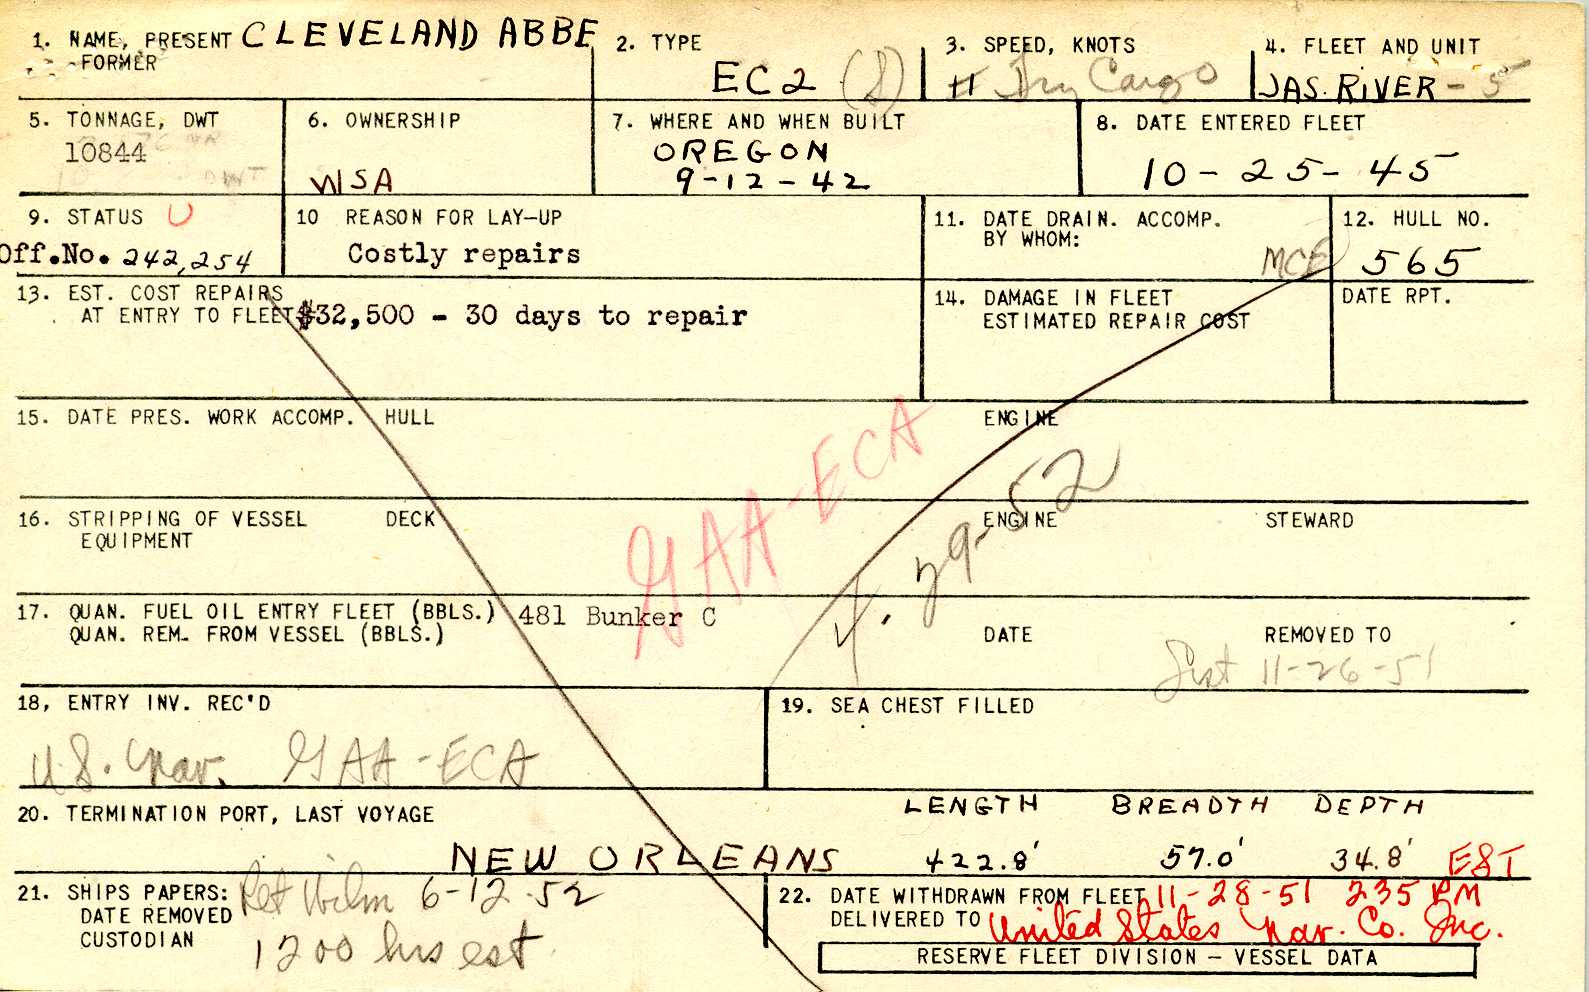 1. NAME, PRESENT CLEVELAND ABBE
FORMER
2. TYPE
EC2 (S)
3. SPEED, KNOTS
11 Dry Cargo
4. FLEET AND UNIT
JAS. RIVER - 5
5. TONNAGE, DWT
10844
DWT
6. OWNERSHIP
WSA
7. WHERE AND WHEN BUILT
OREGON
9-12-42
8. DATE ENTERED FLEET
10-25-45
9. STATUS U
Off.No. 242,254
10 REASON FOR LAY-UP
Costly repairs
11. DATE DRAIN. ACCOMP.
BY WHOM:
MCE
12. HULL NO.
565
13. EST. COST REPAIRS
AT ENTRY TO FLEET $32,500 - 30 days to repair
14. DAMAGE IN FLEET
ESTIMATED REPAIR COST
DATE RPT.
15. DATE PRES. WORK ACCOMP. HULL ENGINE
GAA-ECA
4.29-52
16. STRIPPING OF VESSEL DECK ENGINE STEWARD
EQUIPMENT
17. QUAN. FUEL OIL ENTRY FLEET (BBLS.) 481 Bunker C
QUAN. REM. FROM VESSEL (BBLS.) DATE REMOVED TO
11-26-51
18, ENTRY INV. REC'D
U.S. Nav. GAA-ECA
19. SEA CHEST FILLED
20. TERMINATION PORT, LAST VOYAGE
NEW ORLEANS
LENGTH BREADTH DEPTH
422.8' 57.0' 34.8' EST
21. SHIPS PAPERS: Ret Wilm 6-12-52
DATE REMOVED
CUSTODIAN 1200 hrs est.
22. DATE WITHDRAWN FROM FLEET 11-28-51 235 PM
DELIVERED TO United States Nav. Co. Inc.
RESERVE FLEET DIVISION - VESSEL DATA